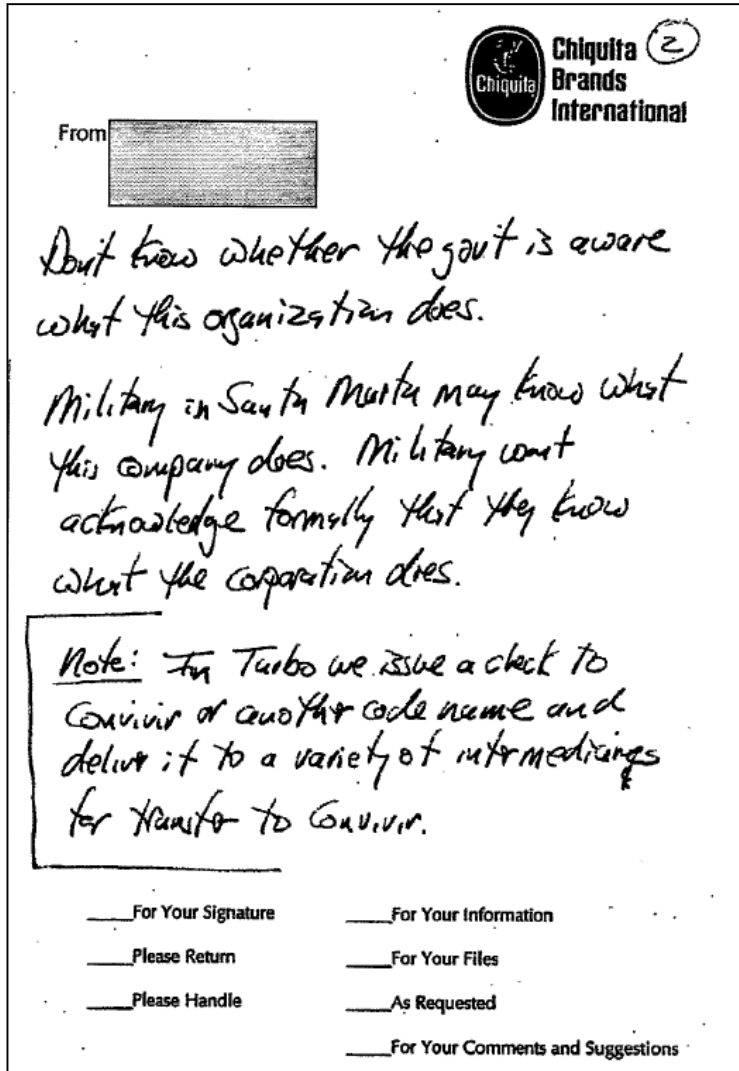 Chiquita
Chiquita
Brands
International
2
From
Don't know whether the gov't is aware
what this organization does.
Military in Santa Marta may know what
this company does. Military wont
acknowledge formally that they know
what the corporation does.
Note: In Turbo we issue a check to
Convivir or another code name and
deliver it to a variety of intermediaries
for transfer to Convivir.
____For Your Signature
____For Your Information
____Please Return
____For Your Files
____Please Handle
____As Requested
____For Your Comments and Suggestions